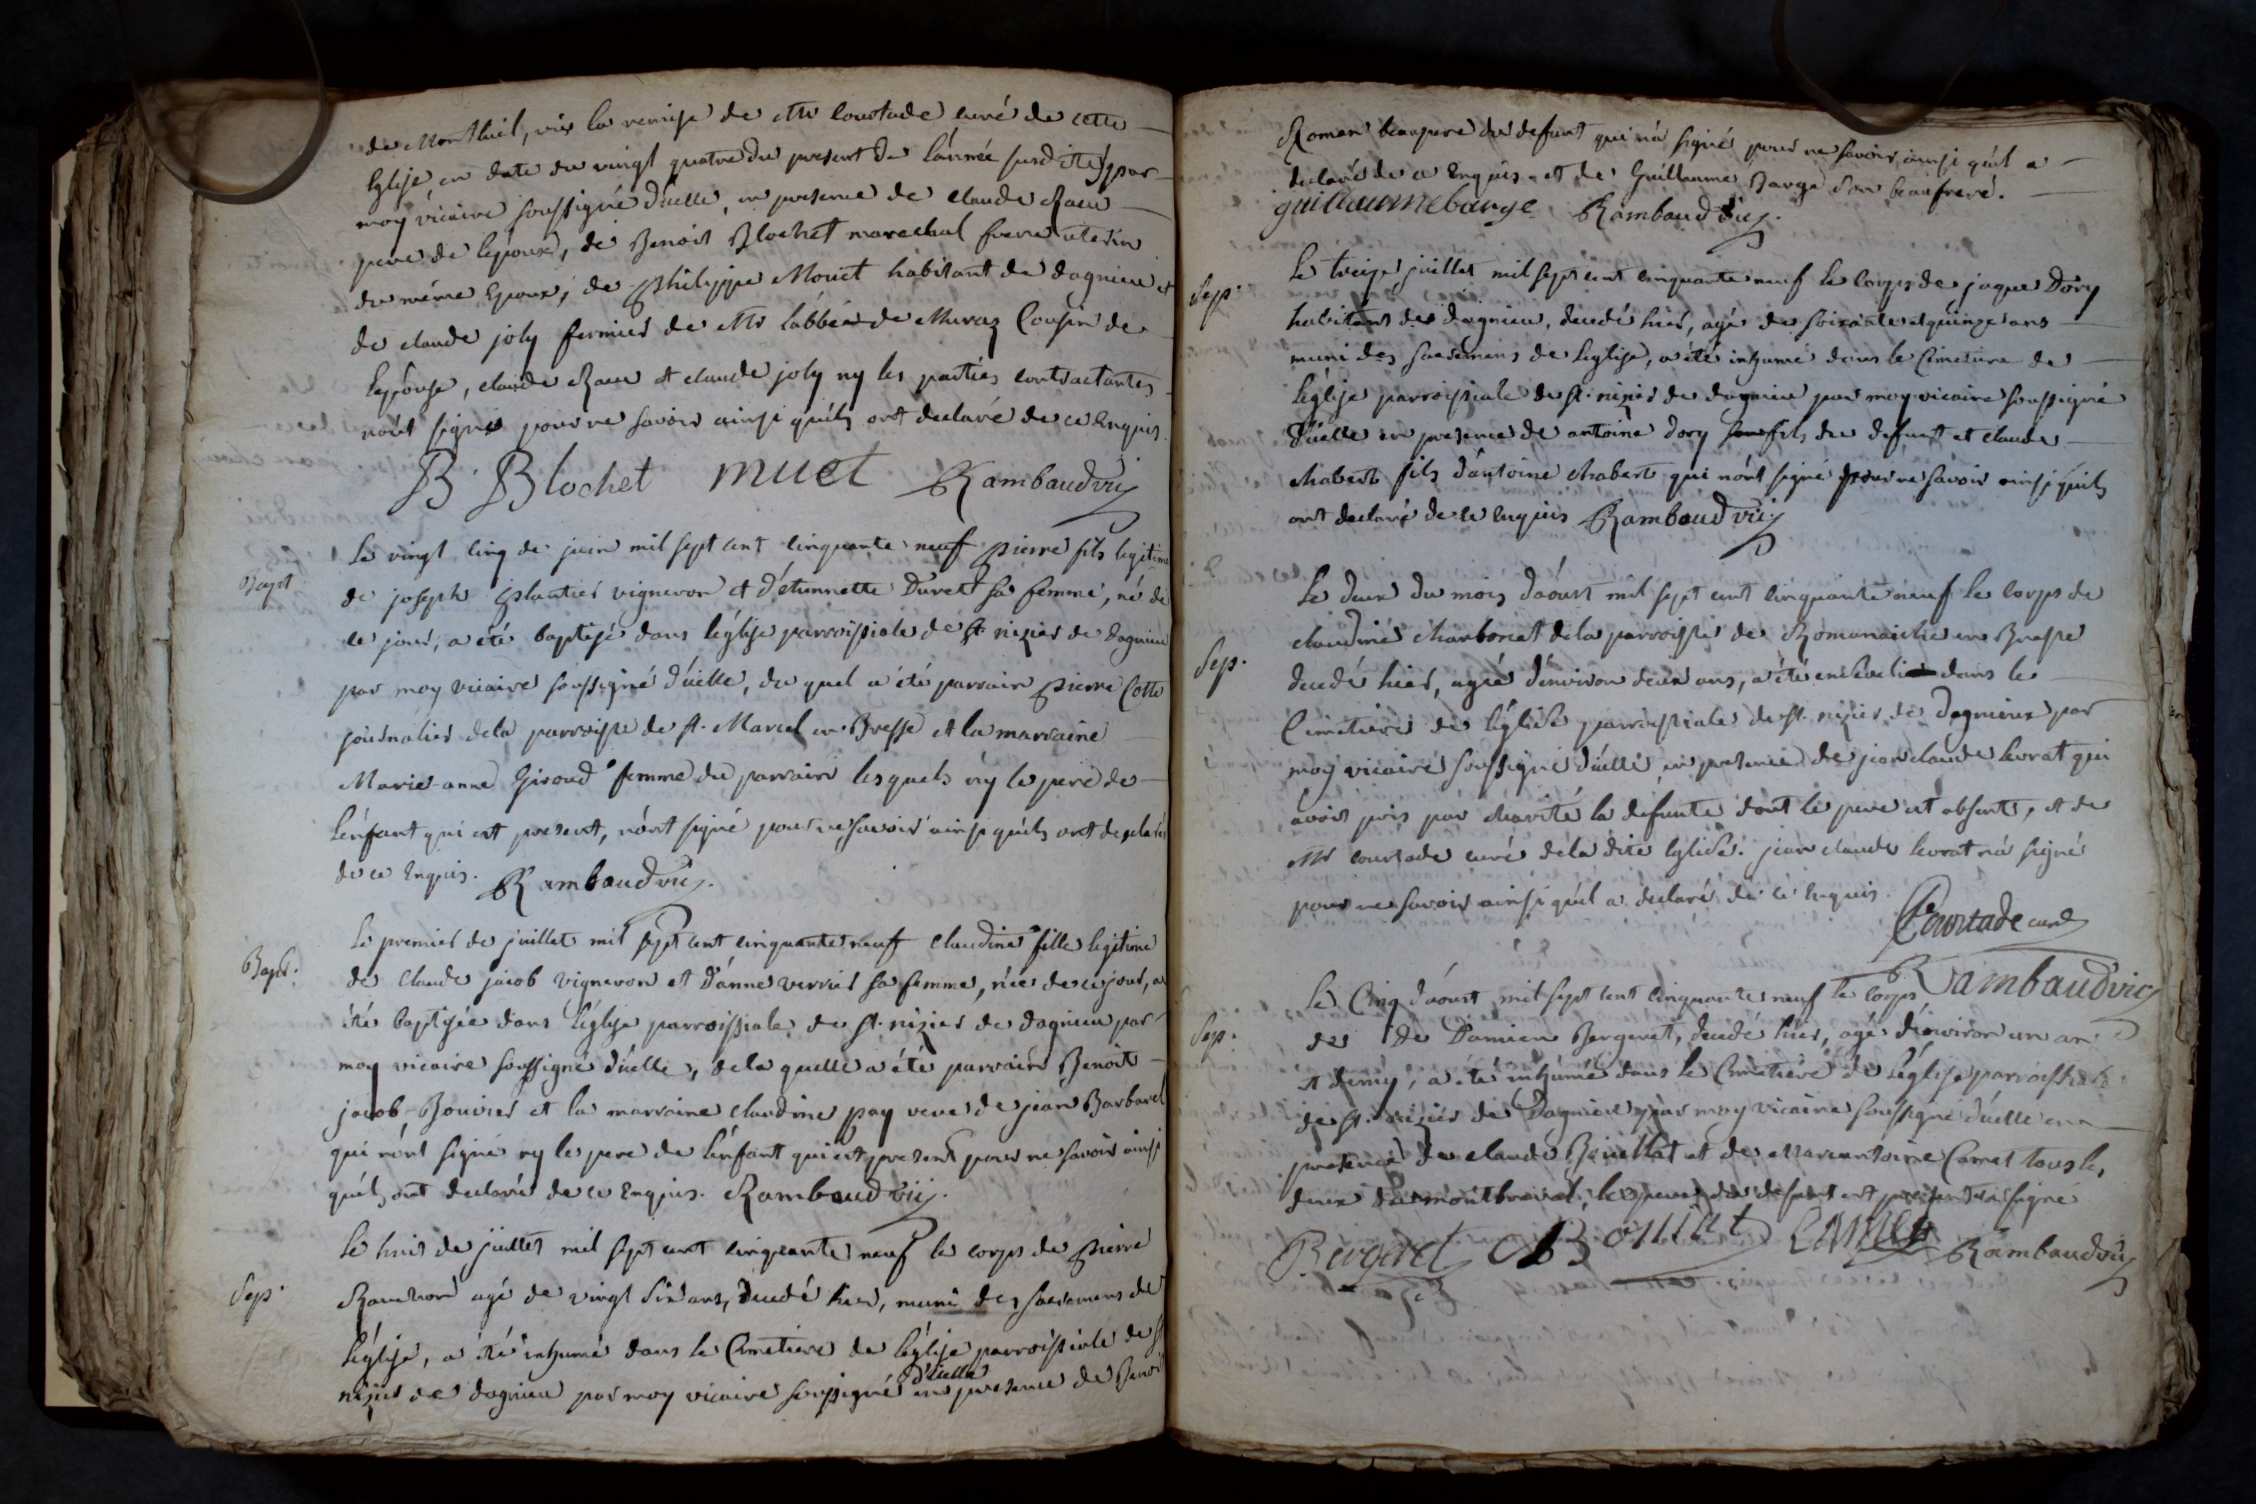 de Montluel, vis la remise de Mr Courtade curé de cette
Eglise, en date du vingt quatre du present de l'année susdite, par
moy vicaire soussigné d'icelle, en presence de claude
pere de l'epoux, de Benoit Blochet marechal frere uterin
du même Epoux, de philippe Mouet habitant de dagnieu et
de claude joly fermier de Mr l'abbé de Muraz Cousin de
l'epouse, claude et claude joly ny les parties contractantes
n'ont signé pour ne savoir ainsi qu'ils ont declaré de ce Enquis.
B Blochet muet Rambaud vic.
Bapt
Le vingt cinq de juin mil sept cent cinquante neuf pierre fils legitime
de joseph vigneron et d'etiennette Duret sa femme, né de
ce jour, a été baptisé dans l'église parroissiale de st. nizier de dagnieu
par moy vicaire soussigné d'icelle, du quel a été parrain pierre Cotte
journalier de la parroisse de st. Marcel en Bresse et la marraine
Marie-anne Giroud femme du parrain lesquels ny le pere de
l'enfant qui est present, n'ont signé pour ne savoir ainsi qu'ils ont declarés
de ce Enquis. Rambaud vic.
Bapt.
Le premier de juillet mil sept cent cinquante neuf claudine fille legitime
de Claude jacob vigneron et d'anne verrier sa femme, née de ce jour, a
été baptisée dans l'église parroissiale de st. nizier de dagnieu par
moy vicaire soussigné d'icelle, de la quelle a été parrain Benoit
jacob Bouvier et la marraine claudine pay veuve de jean Barbarel
qui n'ont signé ny le pere de l'enfant qui est present pour ne savoir ainsi
qu'ils ont declaré de ce Enquis. Rambaud vic.
Sep.
Le huit de juillet mil sept cent cinquante neuf le corps de pierre
agé de vingt six ans, decedé hier, muni des sacremens de
l'église, a été inhumé dans le Cimetiere de l'église parroissiale de st
nizier de dagnieu par moy vicaire soussigné d'icelle en presence de Benoit
Roman beaupere du defunt qui n'a signé pour ne savoir ainsi qu'il a
declaré de ce Enquis et de Guillaume Barge son beaufrere.
guillaume barge Rambaud vic.
Sep.
Le treize juillet mil sept cent cinquante neuf le corps de jaque Dory
habitant de dagnieu, decedé hier, agé de soixante et quinze ans
muni des sacremens de l'eglise, a été inhumé dans le Cimetiere de
l'église parroissiale de st. nizier de dagnieu par moy vicaire soussigné
d'icelle en presence de antoine dory fils du defunt et claude
chabert fils d'antoine chabert qui n'ont signé pour ne savoir ainsi qu'ils
ont declaré de ce enquis Rambaud vic.
Sep.
Le deux du mois d'aoust mil sept cent cinquante neuf le corps de
claudine charbonet de la parroisse de Romanaiche en Bresse
decedé hier, agée d'environ deux ans, a été ensevelie dans le
Cimetiere de l'église parroissiale de st. nizier de dagnieu par
moy vicaire soussigné d'icelle en presence de jean claude levrat qui
avoit pris par charité la defunte dont le pere est absent, et de
Mr courtade curé de la dite eglise. jean claude levrat n'a signé
pour ne savoir ainsi qu'il a declaré de ce Enquis.
Courtade curé
Rambaud vic
Sep.
Le Cinq d'aoust mil sept cent cinquante neuf le corps
de Damien Bergeret, decedé hier, agé d'environ un an
et demy, a été inhumé dans le Cimetiere de l'église parroissiale
de st. nizier de Dagnieu par moy vicaire soussigné d'icelle en
presence de claude et de Marcantoine tous les
deux de le pere du defunt est present a signé
Bergeret Rambaud vic